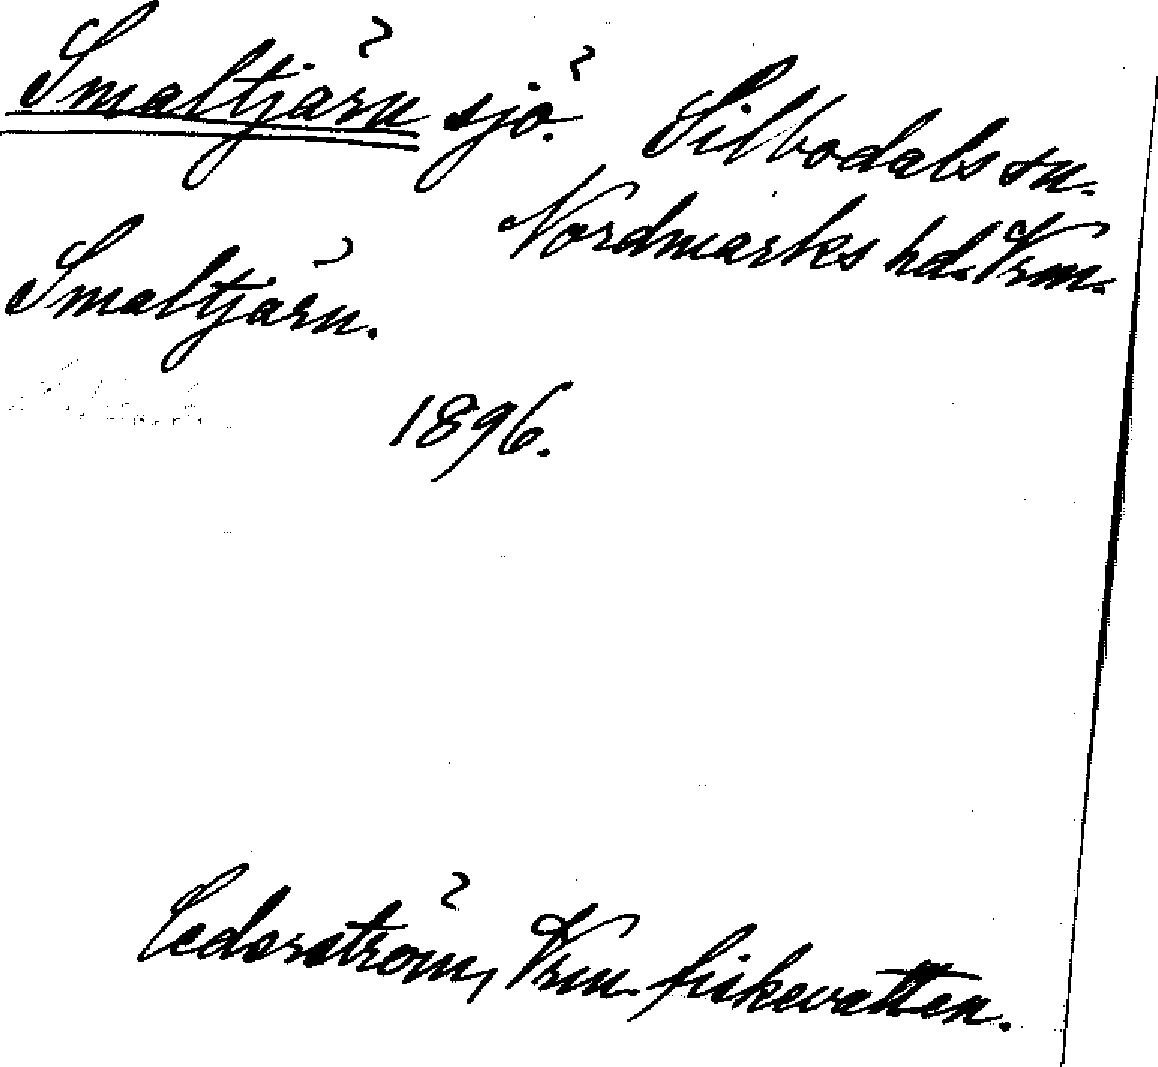 Smaltjärn sjö. Silbodals sn.
Nordmarks hd. Vrm.
Smaltjärn.
1896.
Cederström, Vrm. fiskevatten.